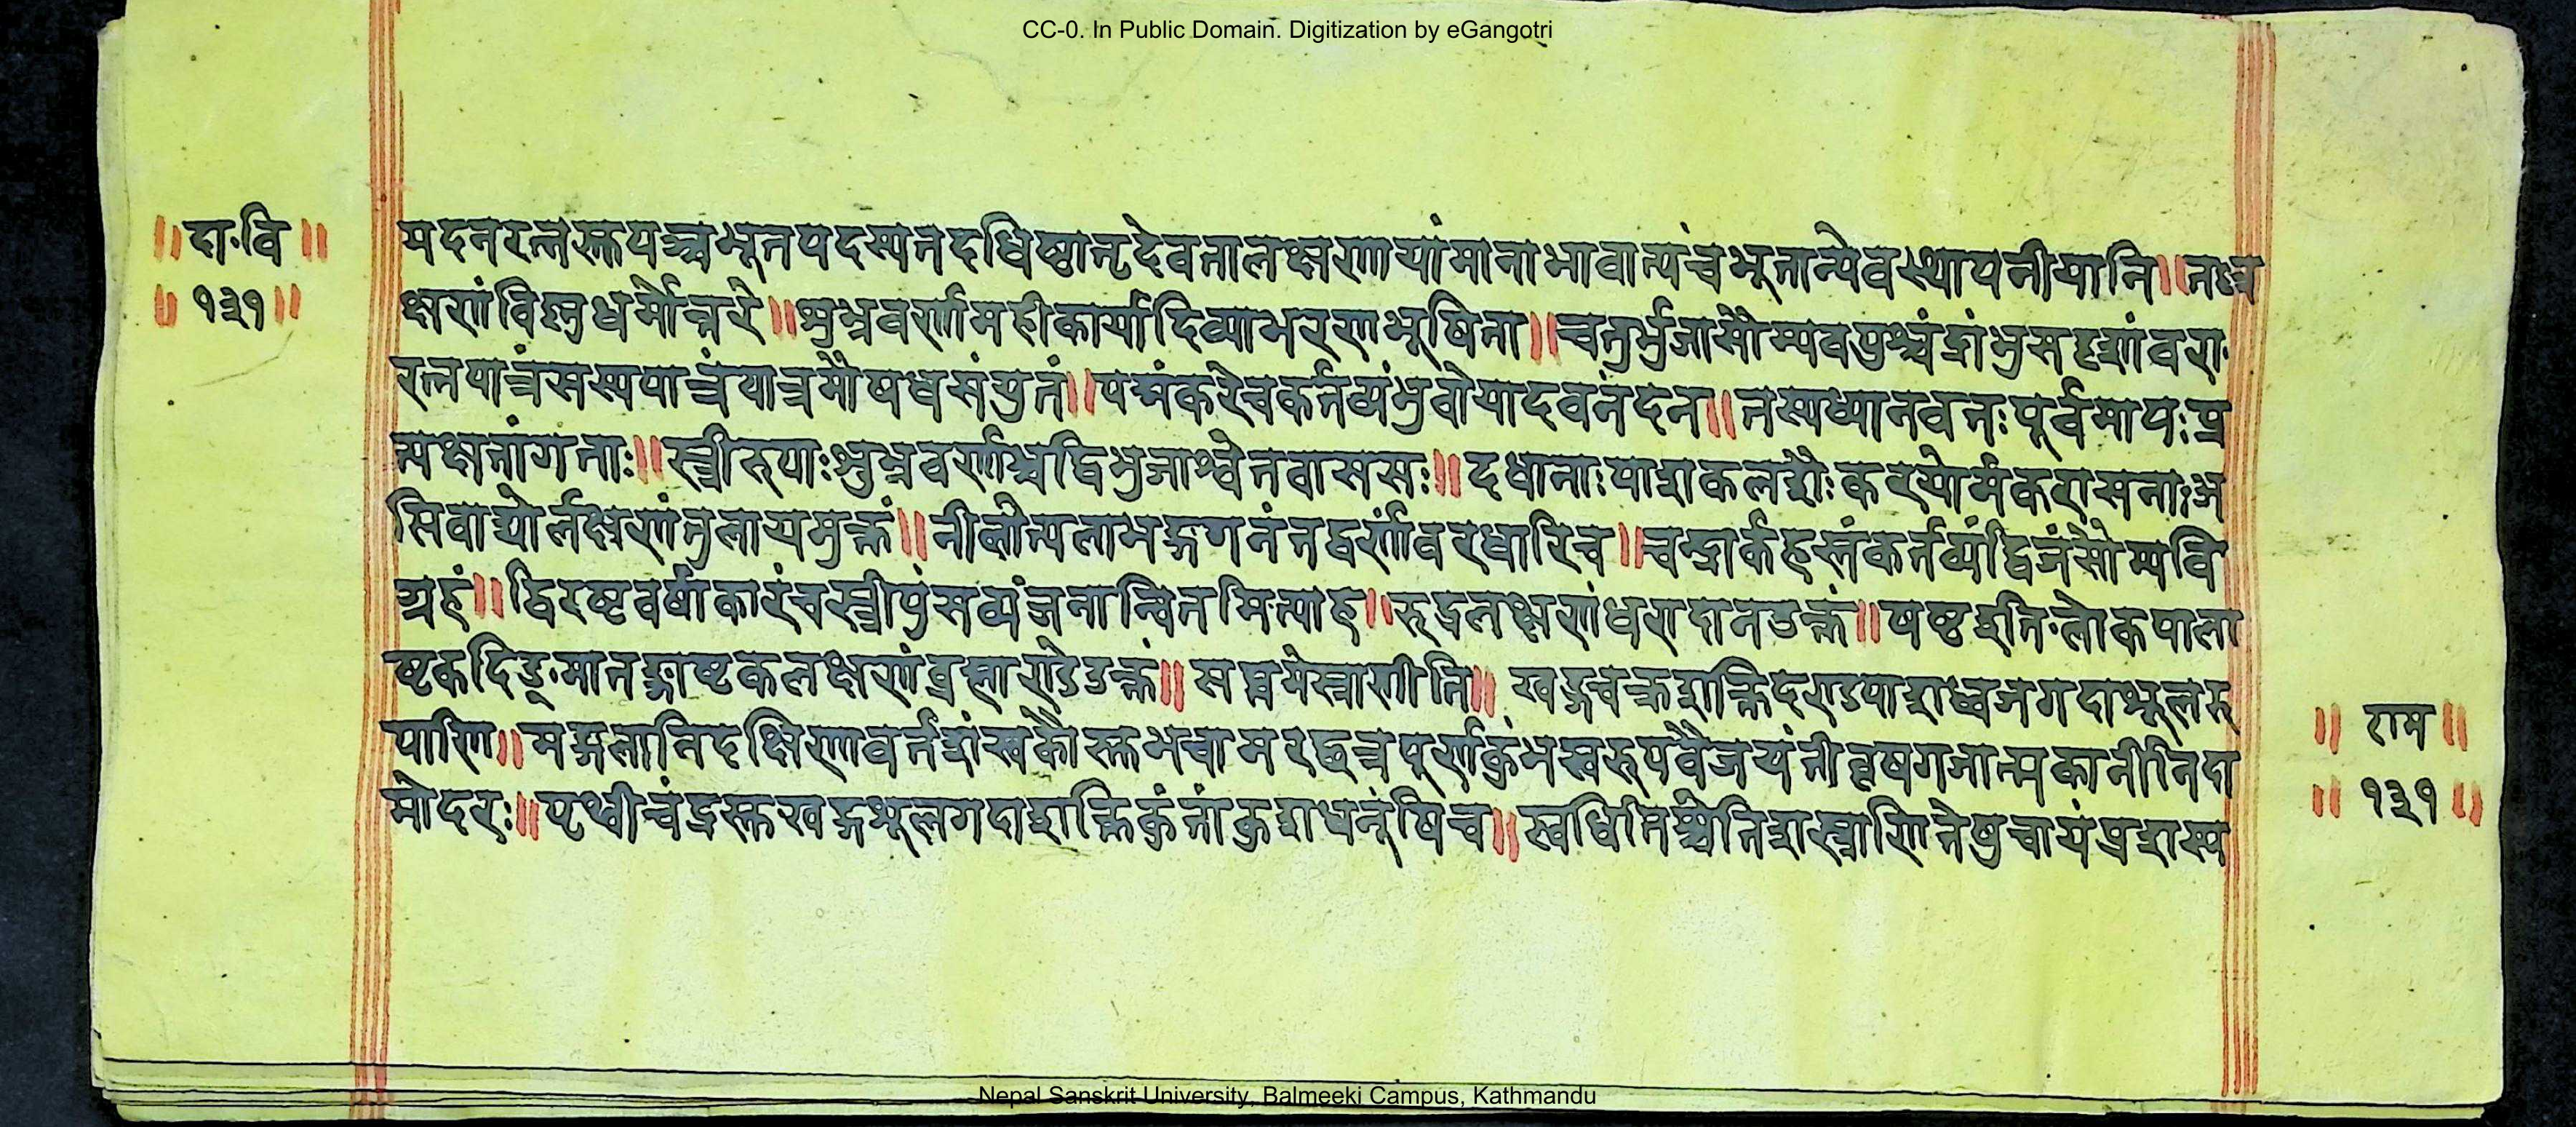 CC-0. In Public Domain. Digitization by eGangotri
॥ दा·वि ॥
॥ १३१ ॥
यदनरत्नस्तुपञ्चभूतपदस्यतदधिष्ठातृदेवतालक्षणायांमानाभावात्पंचभूतान्येवस्थापनीयानि॥तल्ल
क्षणंविष्णुधर्मोत्तरे॥शुभ्रवर्णामहीकार्यादिव्याभरणभूषिता॥चतुर्भुजासौम्यवपुश्चंद्रांशुसदृशांवरा·
रत्नपात्रंसस्यपात्रंपात्रमौषधसंयुतं॥पद्मंकरेचकर्तव्यंभुवोयादवनंदन॥तस्यध्यानवतःपूर्वमापःप्र
त्यक्षतांगताः॥स्त्रीरुपाःशुभ्रवर्णाश्चद्विभुजाश्वेतवाससः॥दधानाःपाशकलशौःकरयोर्मकरासनाःअ
सिवाय्योर्लक्षणंतुलायमुक्तं॥नीलोत्पलाभङ्गगनंतद्वर्णांवरधारिच॥चन्द्रार्कहस्तंकर्तव्यंद्विजंसौम्यवि
ग्रहं॥द्विरष्टवर्षाकारंचस्त्रीपुंसव्यंजनान्वितमित्याह॥रुद्रलक्षणंधरादानउक्तं॥षष्टइति·लोकपाला
ष्टकदिङ्·मातङ्गाष्टकलक्षणंब्रह्माण्डेउक्तं॥सप्तमेस्त्राणीति॥खड्गचक्रशक्तिदण्डपाशध्वजगदाशूलरु
पाणि॥मङ्गलानिदक्षिणावर्तशंखकौस्तुभचामरछत्रपूर्णकुंभस्वरुपवैजयंतीवृषगजात्मकानीतिदा
मोदरः॥पृथ्वीचंद्रस्तुखड्गशूलगदाशक्तिकुंतांकुशधनूंषिच॥स्वधितिश्चेतिशस्त्राणितेषुचायंप्रशस्य
॥ राम ॥
॥ १३१ ॥
Nepal Sanskrit University, Balmeeki Campus, Kathmandu